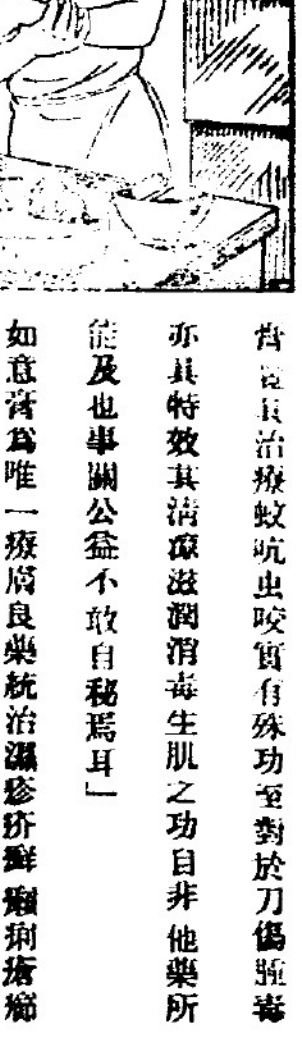 膏其治療蚊吮虫咬實有殊功至對於刀傷腫毒
亦具特效其清凉滋潤消毒生肌之功自非他藥所
能及也事關公益不敢自秘焉耳」
如意膏為唯一療膚良藥統治濕疹疥癬癩痢瘡癤